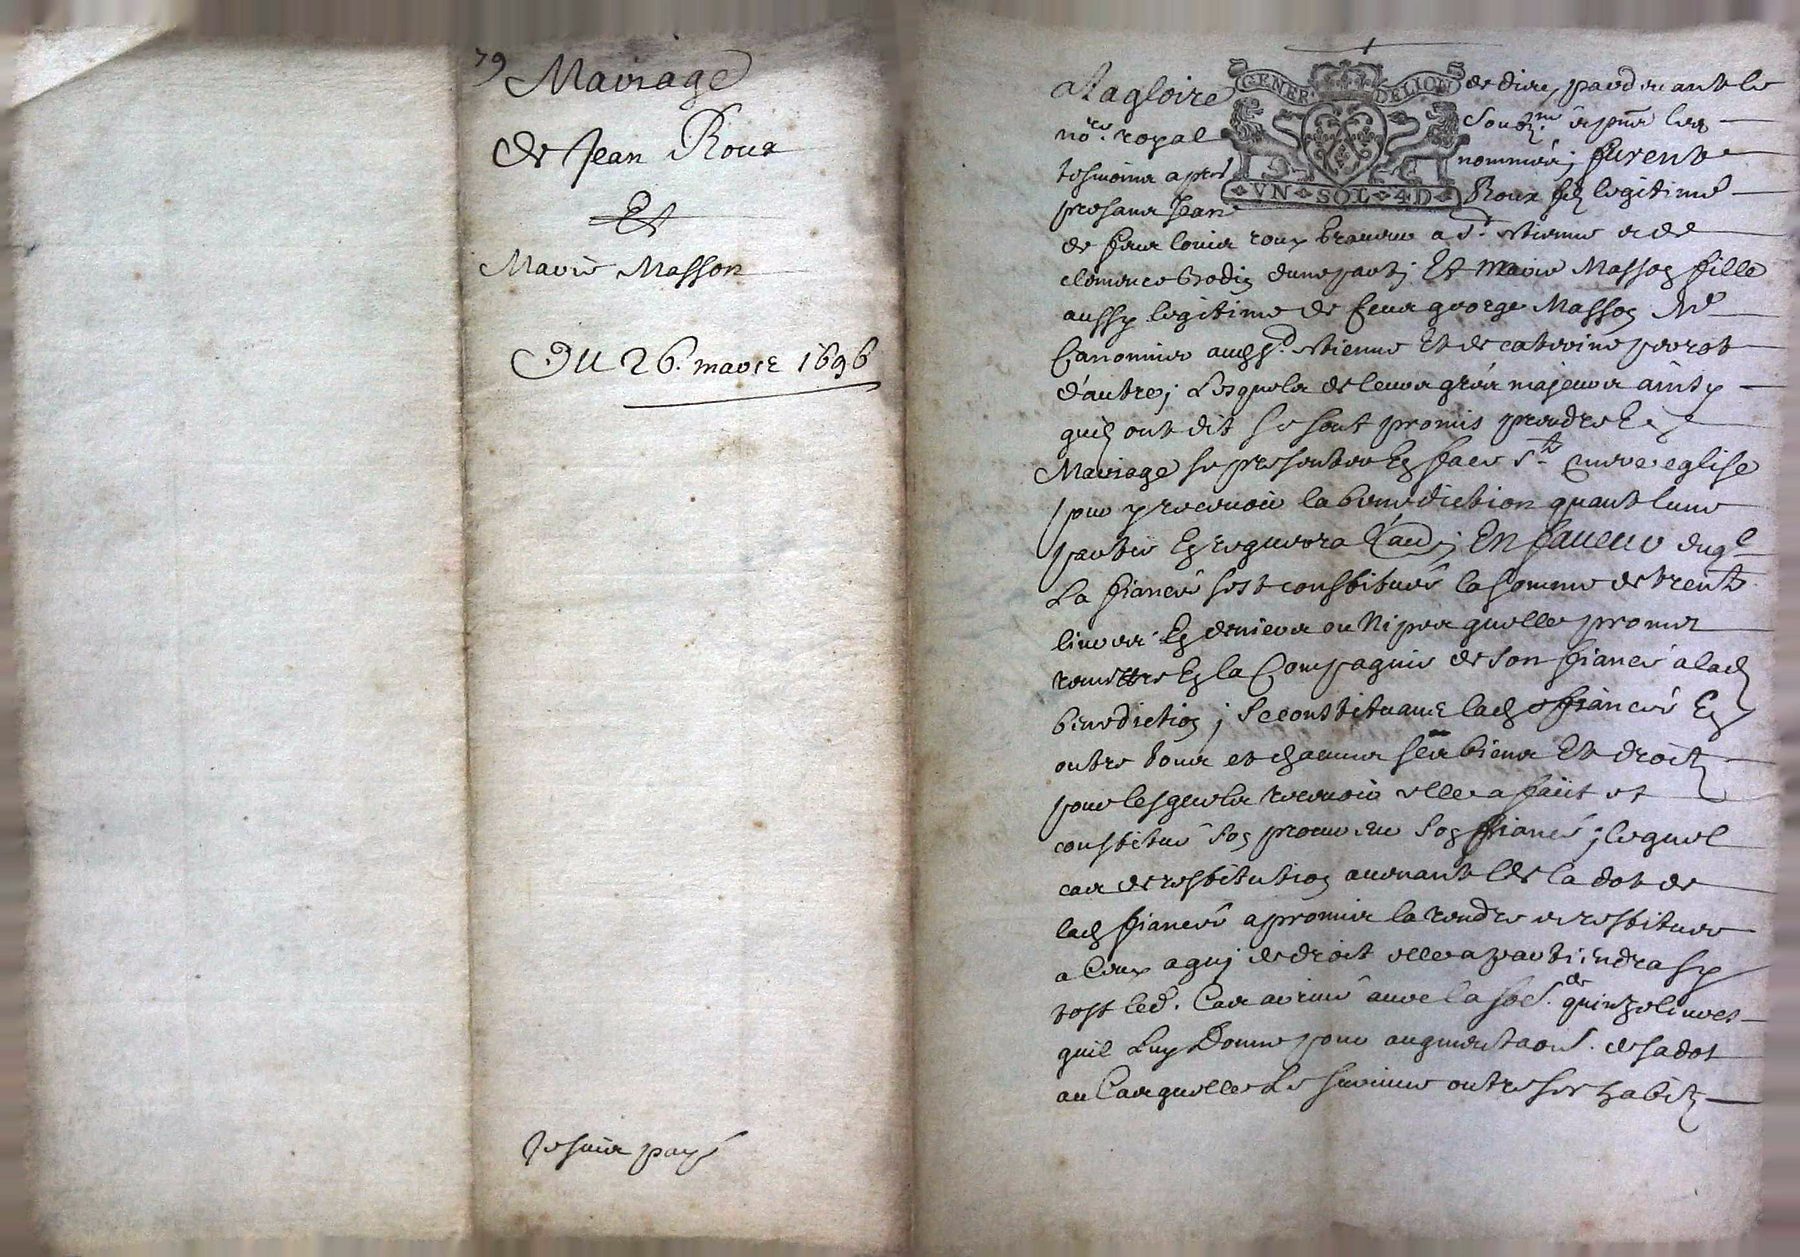 79 Mariage
de Jean Roux
Et
Marie Masson
Du 26. mars 1696
Je suis payé
A la gloire de dieu, pardevant le
nore. royal soubzne. & pnts les
tesmoins apres nommés; furent
presans Jean Roux filz legitime
GENER DELION
VN SOL 4D
de feu louis roux a St. etienne & de
clemence dune part; Et Marie Masson fille
aussy legitime de feu george Masson Me
Canonnier audt St. etienne Et de caterine perrot
d'autre; Lesquels de leurs grés majeurs ainsy
quilz ont dit se sont promis prendre En
Mariage se presenter En face Ste mere eglise
pour y recevoir la benediction quant lune
partie En requerra l'autre; En faveur duql
La fiancée sest constituée la somme de trente
livres En deniers ou Nipes quelle promet
remettre En la Compagnie de son fiancé a lad
benediction; Se constituant lade fiancée En
outre tous et chacuns ses biens Et droitz
pour lesquels recevoir elle a faiit et
constitué son procureur son fiancé; lequel
cas de restitution avenant de la dot de
lad fiancée a promis la rendre & restituer
a Ceux a qui de droit elle apartiendra sy
tost led. Cas arivé avec la so[mme] de quinze livres
quil Luy Donne pour augmentaon. de sa dot
au Cas quelle Le survive outre ses habitz